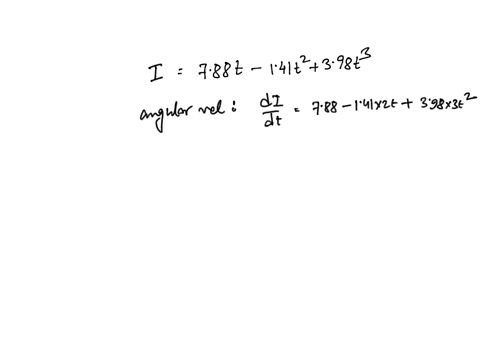 I = 7.88t - 1.41t² + 3.98t³
angular vel : dI/dt = 7.88 - 1.41×2t + 3.98×3t²